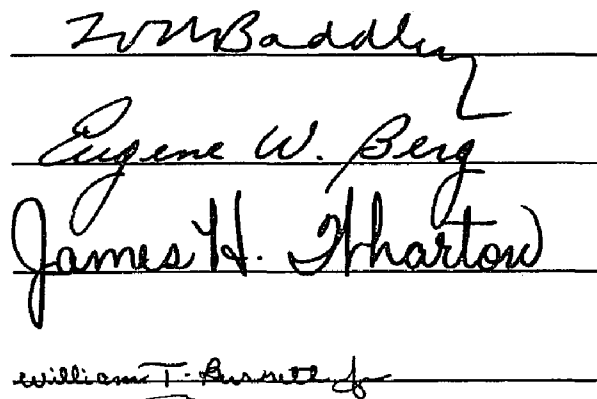 Wm Baddley
Eugene W. Berg
James H. Wharton
William T. Jr